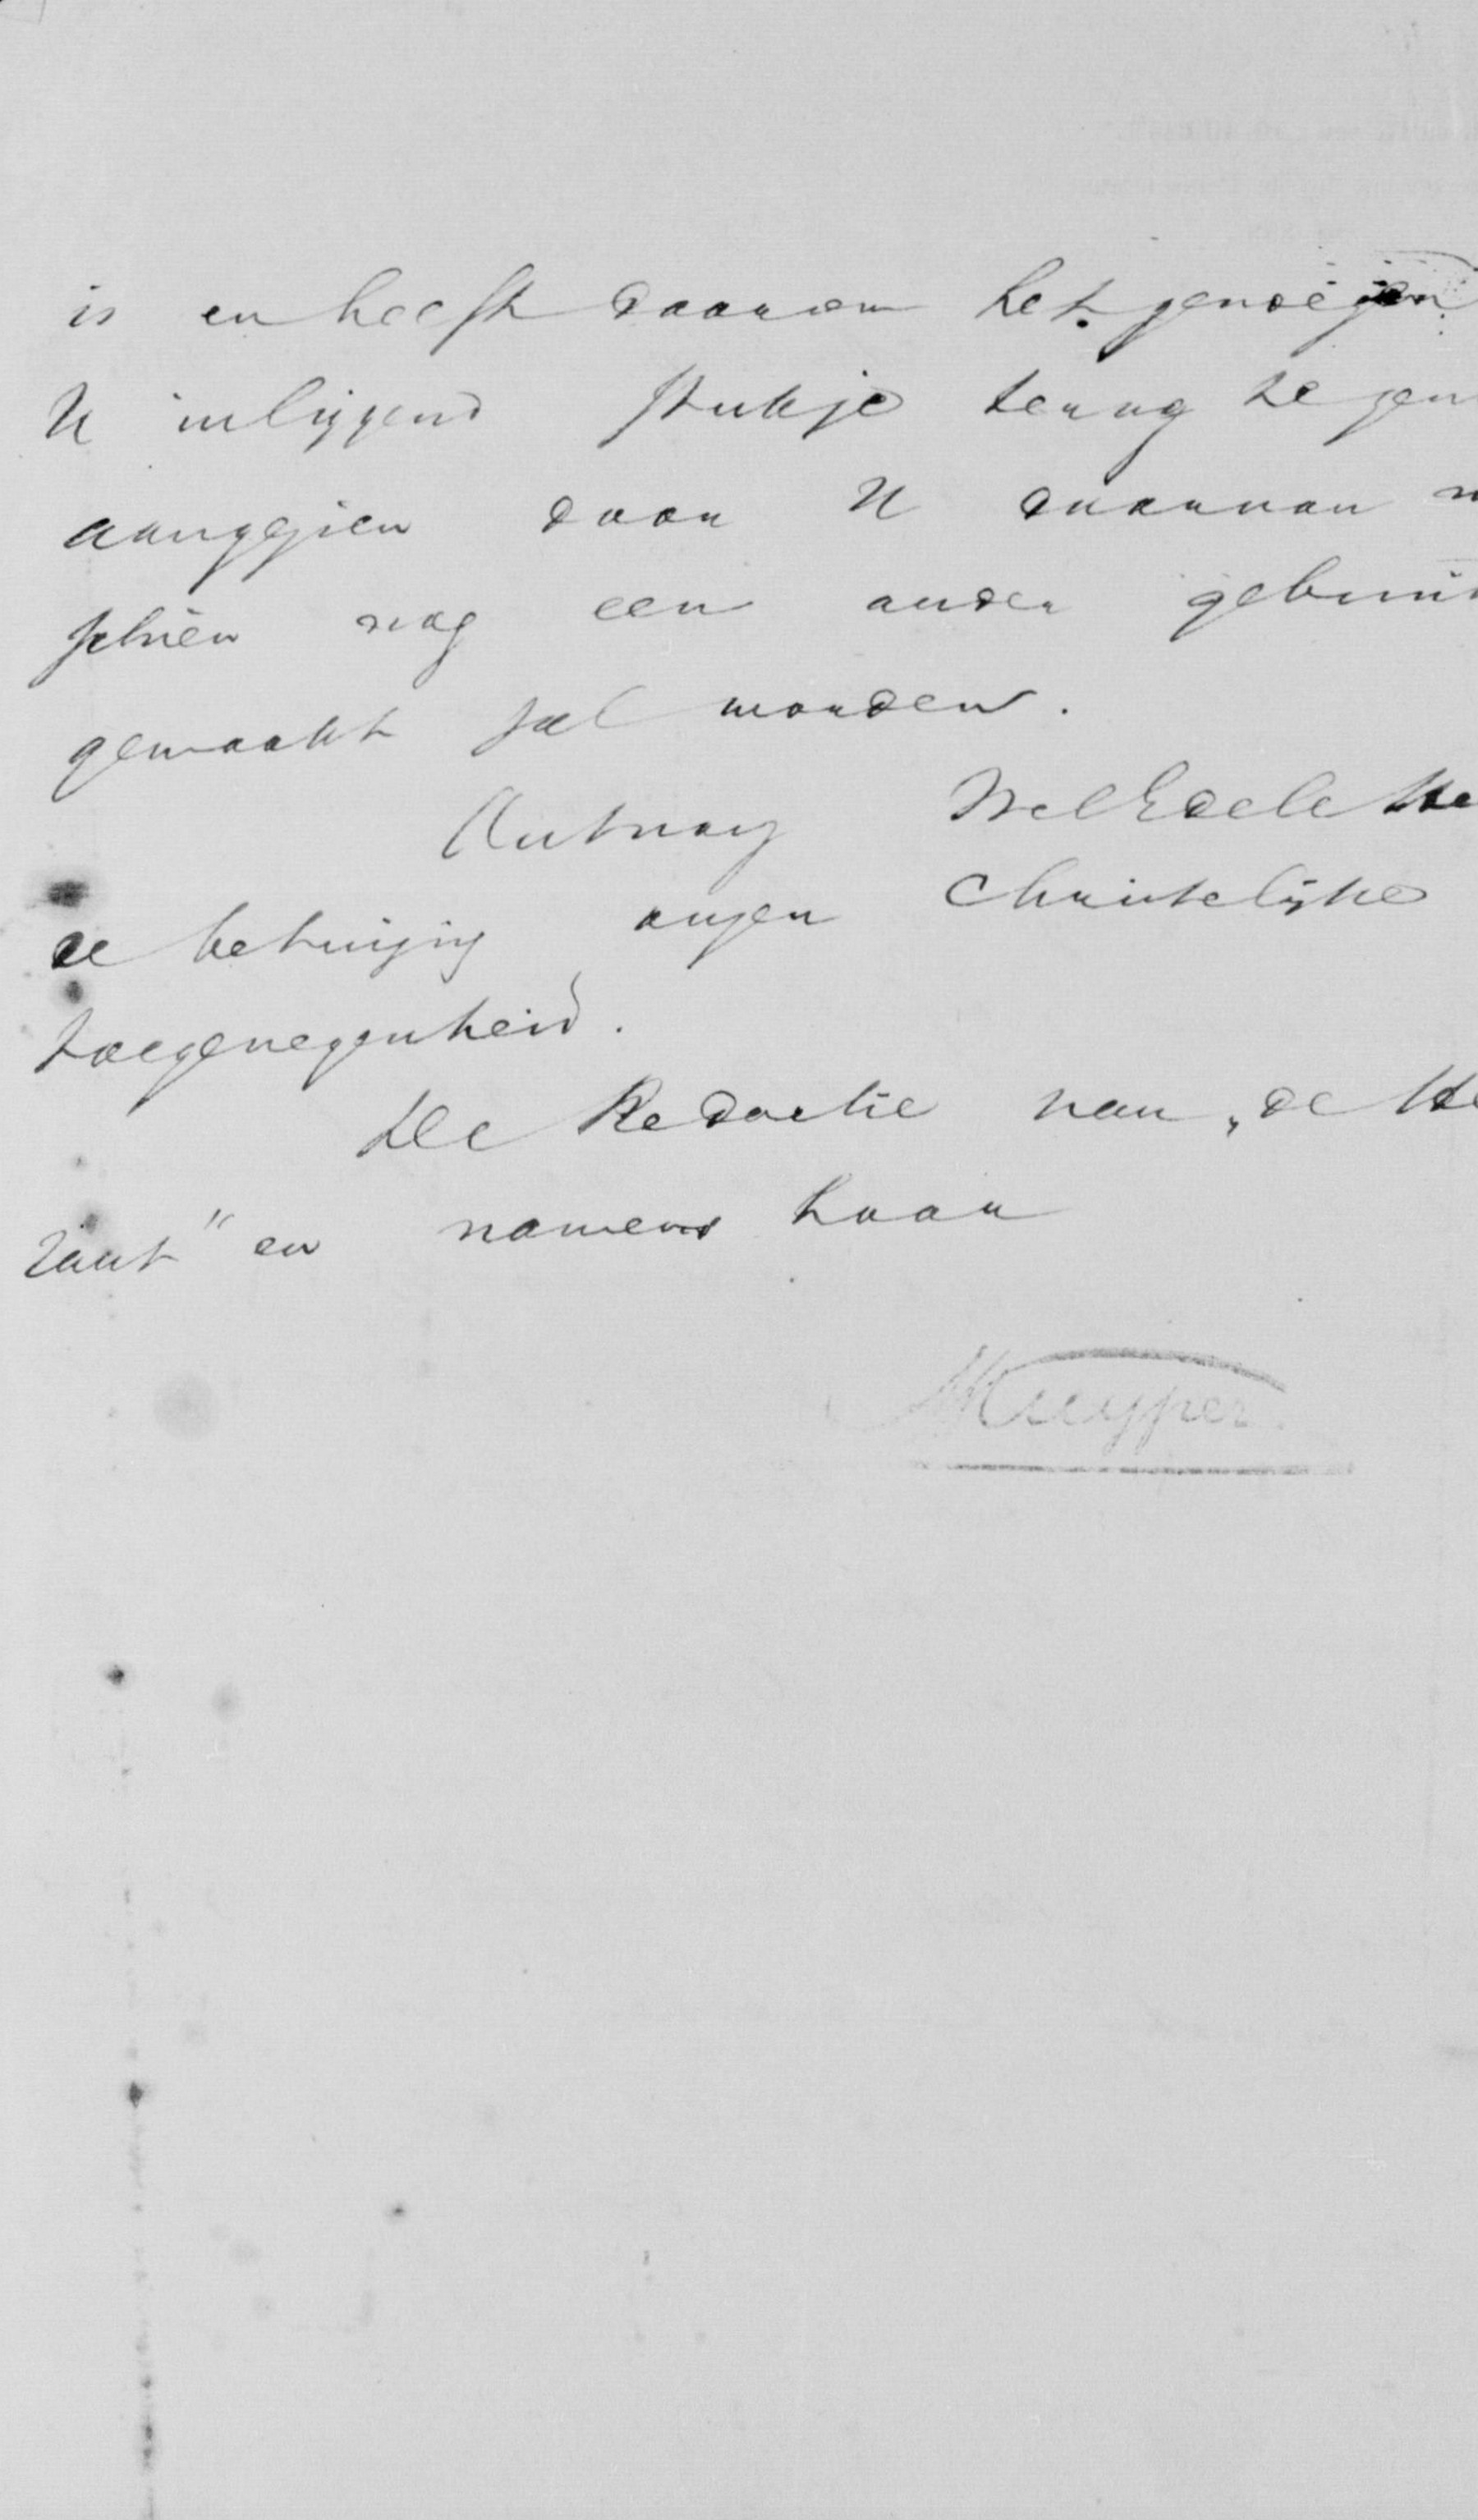 is en heeft daarom het genoegen
U inliggend stukje terug te zen
aangezien door U daarvan m
schien nog een ander gebruik
gemaakt zal worden.
Ontvang WelEdele He
de betuiging onzer Christelijke
toegenegenheid.
De Redactie van „de He
raut" en namens haar
Kuyper